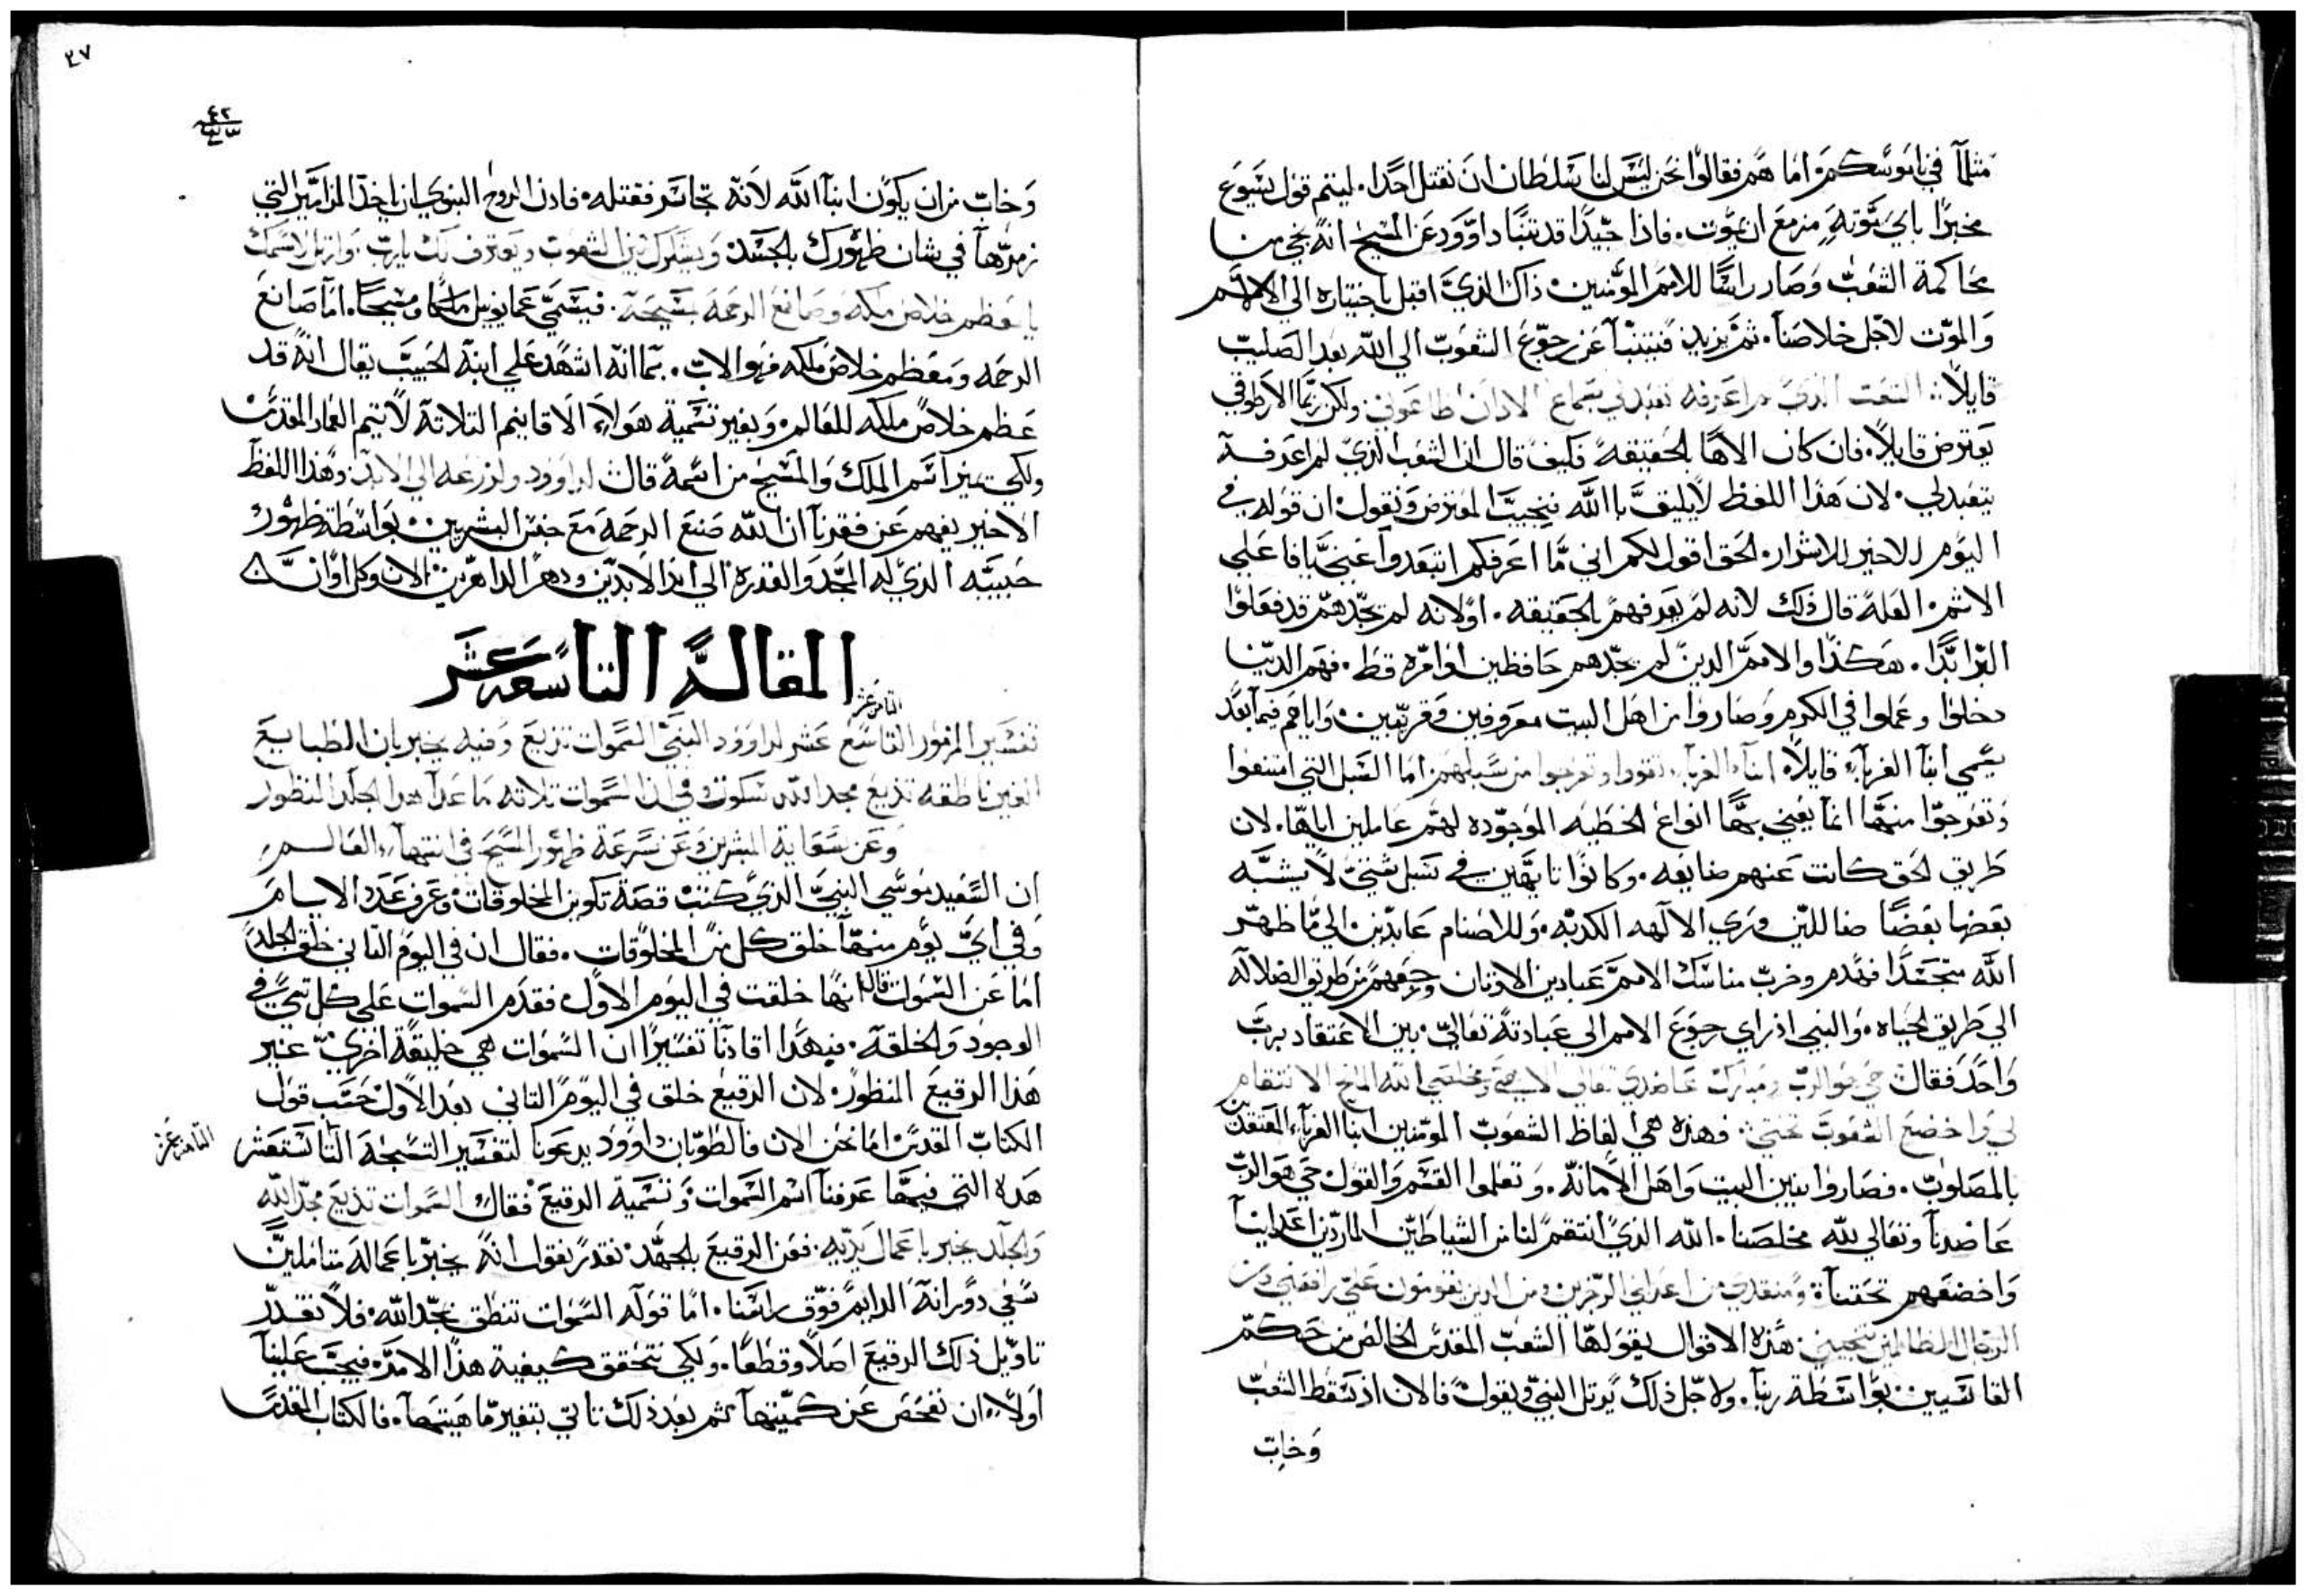 مثلما في ناموسكم. اما هم فقالوا نحن ليس لنا سلطان ان نقتل احدا. ليتم قول يسوع
مخبرا باي موتة مزمع ان يموت. فاذا جيدا قد تنبا داوود عن المسيح انه نجي من
محاكمة الشعب وصار راسا للامم المومنين. ذاك الذي اقبل باختياره الي الالام
والموت لاجل خلاصنا. ثم يزيد فيتنبا عن رجوع الشعوب الي الله بعد الصليب
قايلا: الشعب الذي لم اعرفه تعبد لي بسماع الاذان اطاعوني ولكن ربما الاراطوقي
يعترض قايلا. فان كان الاها بالحقيقه فكيف قال ان الشعب الذي لم اعرفه
يتعبد لي. لان هذا اللفظ لا يليق بالله فنجيب المعترض ونقول ان قوله في
اليوم الاخير للاشرار. الحق اقول لكم اني ما اعرفكم ابتعدوا عني يا فاعلي
الاثم. العله قال ذلك لانه لم يعرفهم بالحقيقه. او لانه لم يجدهم قد فعلوا
البر ابدا. هكذا والامم الذين لم يجدهم حافظين اوامره قط. فهم الذين
دخلوا وعملوا في الكرم وصاروا من اهل البيت معروفين وقريبين. واياهم فيما بعد
يسمي ابنا الغربا قايلا: ابنا الغربا تقووا وتعرجوا من سبلهم: اما السبل التي امتنعوا
وتعرجوا منها انما يعني بها انواع الخطيه الموجوده لهم عاملين اياها. لان
طريق الحق كانت عنهم ضايعه. وكانوا تايهين في سبل شتي لا يشبه
بعضها بعضا ضاللين وري الالهه الكدبه. وللاصنام عابدين. الي ما ظهر
الله متجسدا فهدم وخرب مناسك الامم عبادين الاوتان ورجعهم من طريق الضلاله
الي طريق الحياه. والنبي اذ راي رجوع الامم الي عبادته تعالي. بين الاعتقاد برب
واحد فقال: حي هو الرب ومبارك عاضدي تعالي الاهي ومخلصي الله المانح الانتقام
لي واخضع الشعوب تحتي: فهذه هي الفاظ الشعوب المومنين ابنا الغربا المعتقدين
بالمصلوب. فصاروا بنين البيت واهل الامانه. وتعلموا القسم والقول حي هو الرب
عاضدنا وتعالي الله مخلصنا. الله الذي انتقم لنا من الشياطين الماردين اعداينا
واخضعهم تحتنا: ومنقذي من اعداي الرجزين ومن الدين يقومون علي رافعني ومن
الرجال الظالمين تنجيني: هذه الاقوال يقولها الشعب المقدس الخالص من حكم
القاسيين بواسطة ربنا. ولاجل ذلك يرتل النبي ويقول: فالان اذ سقط الشعب
وخاب
٣٧
وخاب من ان يكون ابنا الله لانه تجاسر فقتله. فاذن الروح النبوي ان ياخذ المزامير التي
زمرها في شان ظهورك بالجسد ويشترك بين الشعوب ويعترف لك يارب. وارتل لاسمك
يا معظم خلاص ملكه وصانع الرحمة بمسيحه. فيسمي عمانويل ملكا ومسيحا. اما صانع
الرحمه ومعظم خلاص ملكه فهو الاب. بما انه اشهد علي ابنه الحبيب يقال انه قد
عظم خلاص ملكه للعالم. وبغير تسمية هولاء الاقانيم التلاتة لا يتم العماد المقدس
ولكي يميز اسم الملك والمسيح من ايمة قال: لداوود ولزرعه الي الابد: وهذا اللفظ
الاخير يفهم عن فقرنا ان الله صنع الرحمة مع جنس البشريين: بواسطة ظهور
حبيبه الذي له المجد والقدره الي ابد الابدين ودهر الداهرين: الان وكل اوان
المقالة التاسعه عشر
الثامن عشر
تفسير المزمور التاسع عشر لداوود النبي السموات تذيع وفيه يخبر بان الطبايع
الغير ناطقه تذيع مجد الله بسكوت وفي ان السموات تلاته ما عدا هذا الجلد المنظور
وعن سعاية المبشرين وعن سرعة ظهور المسيح في انتهاء العالم
ان السعيد موسي النبي الذي كتب قصة تكوين المخلوقات وعرف عدد الايام
وفي اي يوم منها خلق كل من المخلوقات. فقال ان في اليوم التاني خلق الجلد
اما عن السموات قال انها خلقت في اليوم الاول. فقدم السموات علي كل شي في
الوجود والخلقه. فبهذا افادنا تفسيرا ان السموات هي خليقة اخري غير
هذا الرقيع المنظور. لان الرقيع خلق في اليوم التاني بعد الاول حسب قول
الكتاب المقدس. اما نحن الان فالطوبان داوود يدعونا لتفسير التسبحة التاسعة عشر
الثامنة عشر
هذه التي فيها عرفنا اسم السموات وتسمية الرقيع فقال: السموات تذيع مجد الله
والجلد يخبر باعمال يديه. فعن الرقيع بالجهد نقدر نقول انه يخبر باعماله متاملين
سعي دورانه الدايم فوق راسنا. اما قوله السموات تنطق بمجد الله. فلا نقدر
تاويل ذلك الرقيع اصلا وقطعا. ولكي نتحقق كيفية هذا الامر. فيجب علينا
اولا ان نفحص عن كميتها ثم بعد ذلك ناتي بتفيير ماهيتها. فالكتاب المقدس